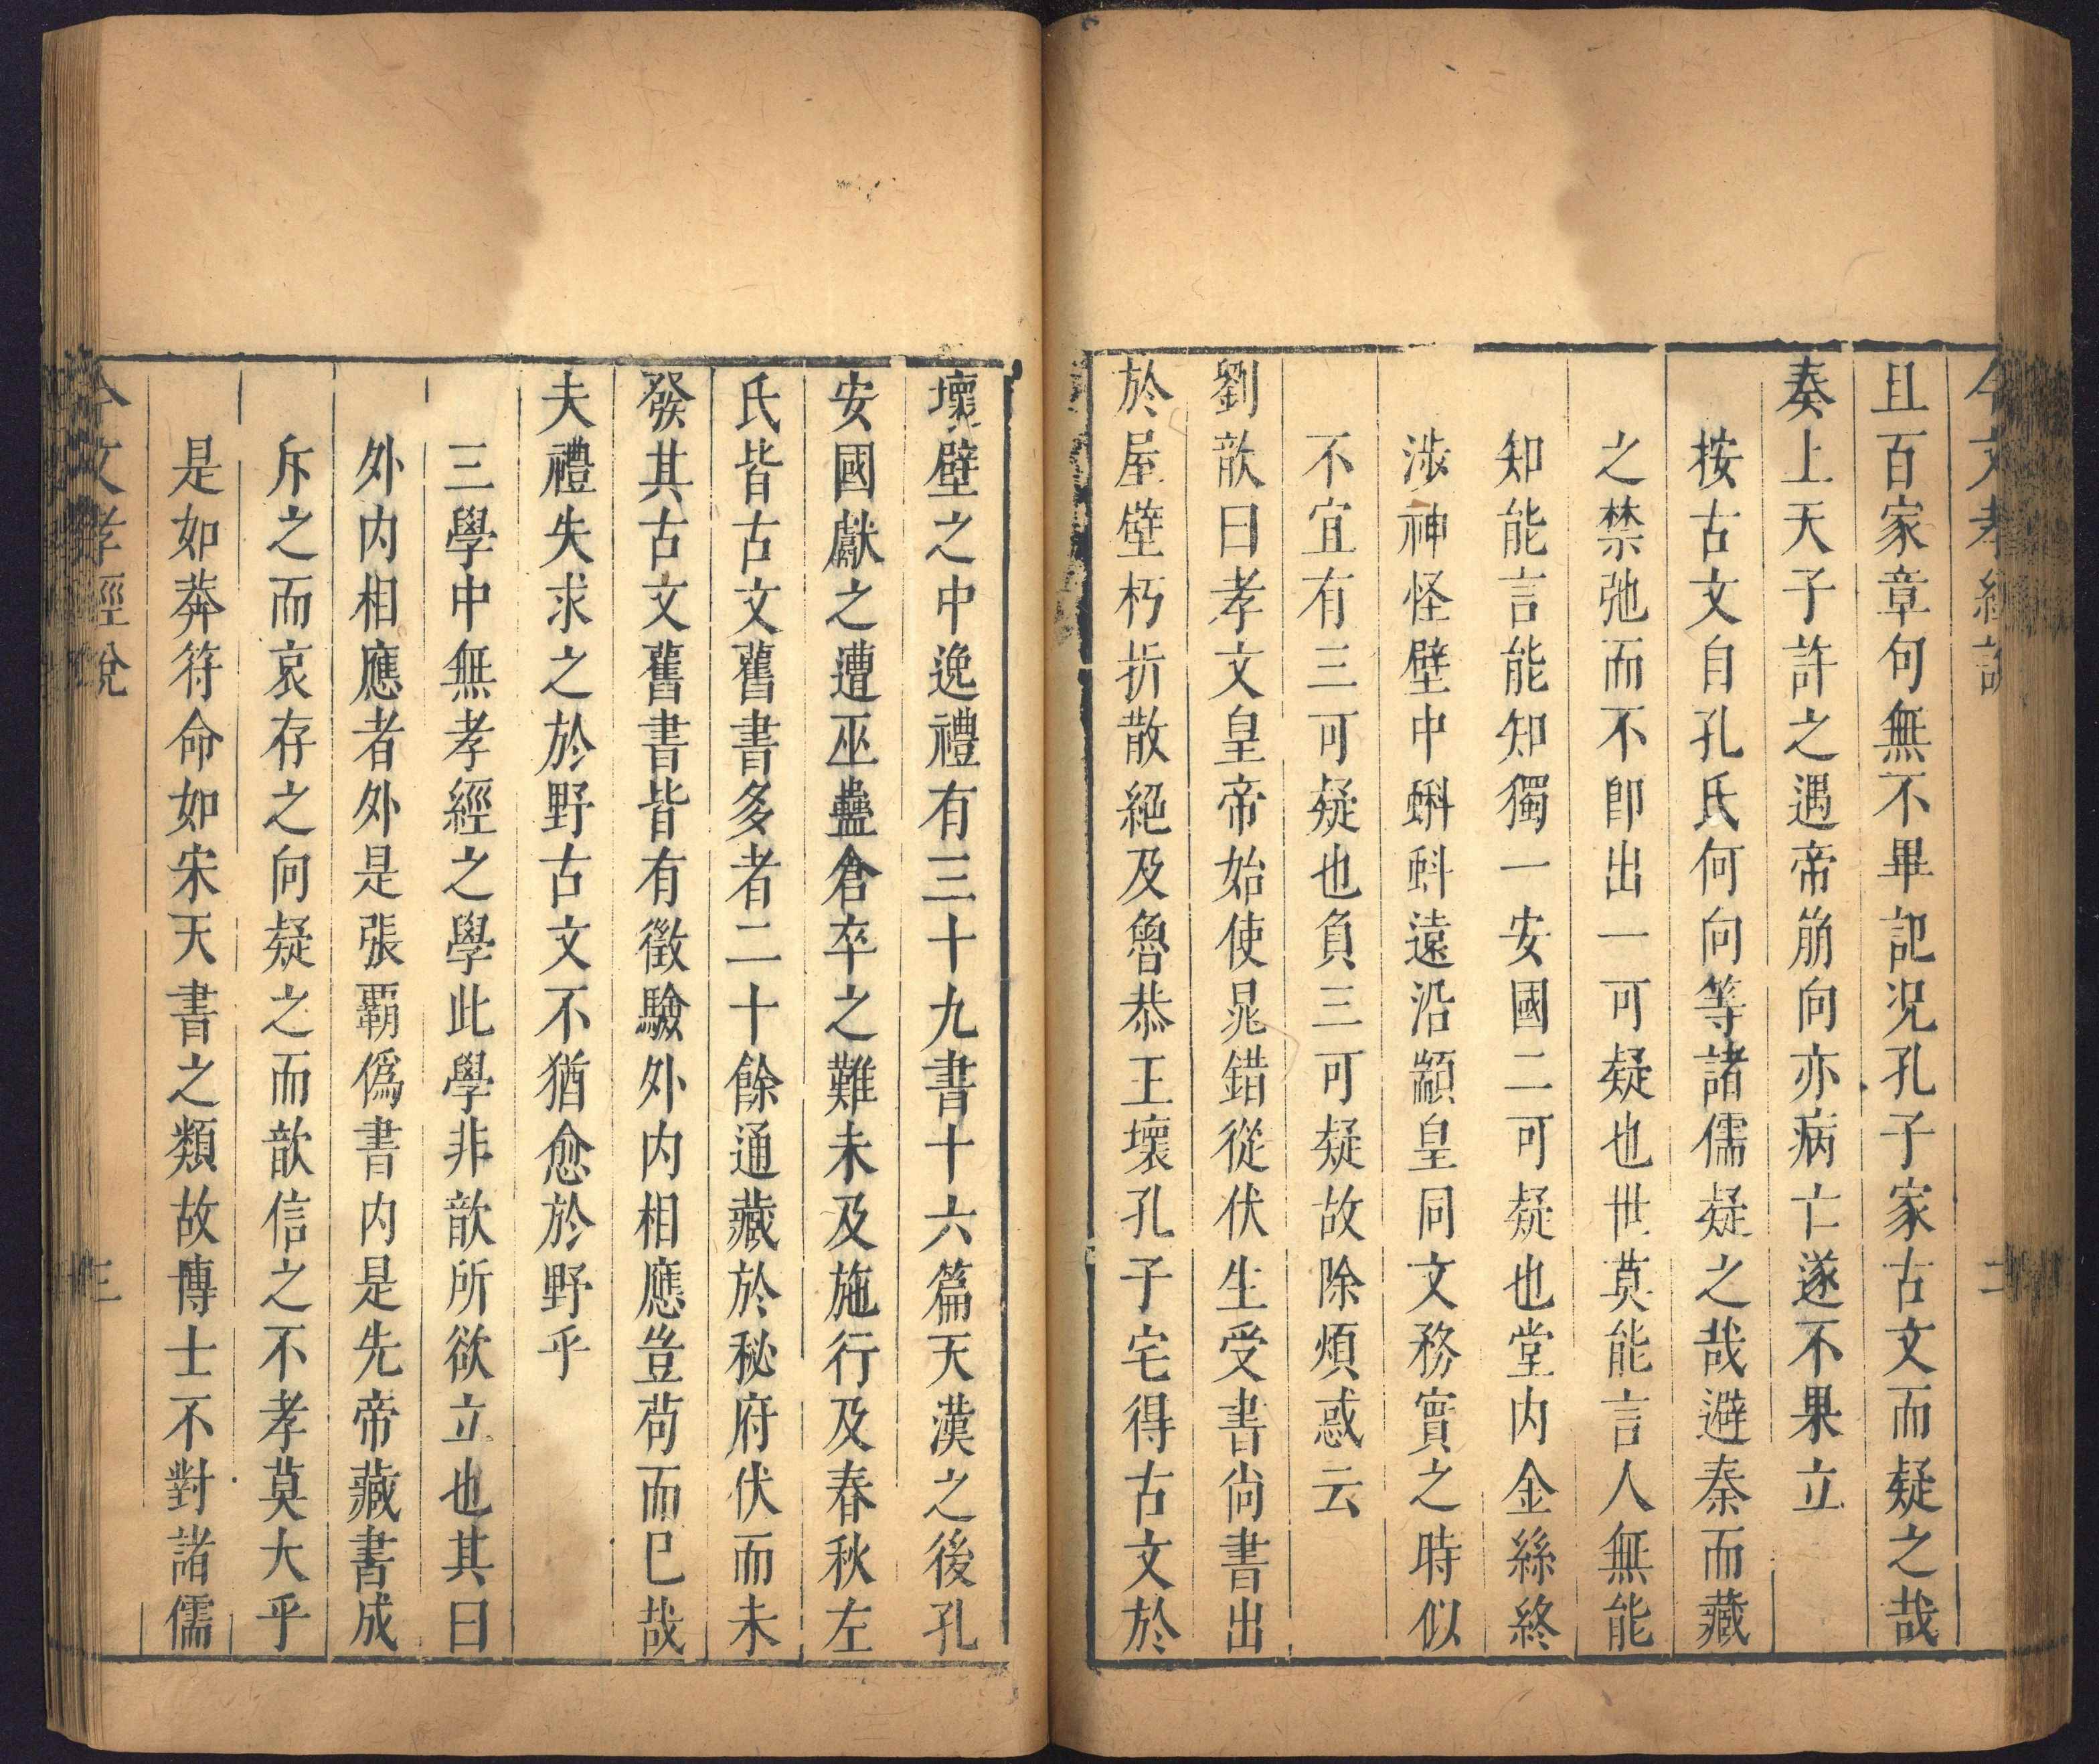 今文孝經說
二
且百家章句無不畢記况孔子家古文而疑之哉
奏上天子許之遇帝崩向亦病亡遂不果立
按古文自孔氏何向等諸儒疑之哉避秦而藏
之禁弛而不卽出一可疑也世莫能言人無能
知能言能知獨一安國二可疑也堂内金絲終
涉神怪壁中蝌蚪遠沿顓皇同文務實之時似
不宜有三可疑也負三可疑故除煩惑云
劉歆曰孝文皇帝始使晁錯從伏生受書尙書出
於屋壁朽折散絕及魯恭王壞孔子宅得古文於
壞壁之中逸禮有三十九書十六篇天漢之後孔
安國獻之遭巫蠱倉卒之難未及施行及春秋左
氏皆古文舊書多者二十餘通藏於秘府伏而未
發其古文舊書皆有徵驗外内相應豈苟而已哉
夫禮失求之於野古文不猶愈於野乎
三學中無孝經之學此學非歆所欲立也其曰
外内相應者外是張覇僞書内是先帝藏書成
斥之而哀存之向疑之而歆信之不孝莫大乎
是如莽符命如宋天書之類故博士不對諸儒
今文孝經說
三